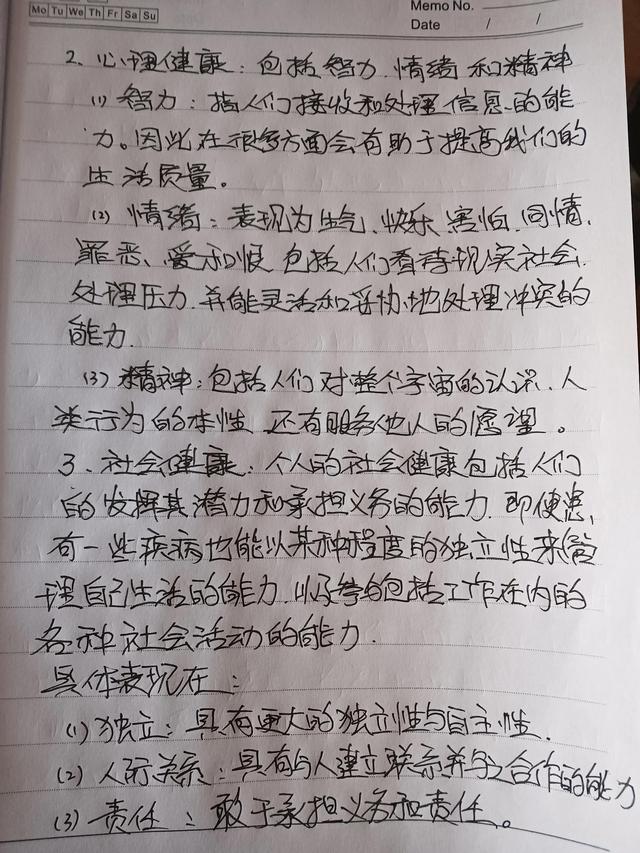 Mo Tu We Th Fr Sa Su
Memo No.
Date / /
2、心理健康：包括智力、情绪和精神
(1) 智力：指人们接收和处理信息的能
力。因此在很多方面会有助于提高我们的
生活质量。
(2) 情绪：表现为生气、快乐、害怕、同情、
罪恶、爱和恨，包括人们看待现实社会、
处理压力、并能灵活和妥协地处理冲突的
能力.
(3) 精神：包括人们对整个宇宙的认识、人
类行为的本性、还有服务他人的愿望。
3、社会健康：个人的社会健康包括人们
的发挥其潜力和承担义务的能力、即使患
有一些疾病也能以某种程度的独立性来管
理自己生活的能力、以及参与包括工作在内的
各种社会活动的能力.
具体表现在：
(1) 独立：具有更大的独立性与自主性.
(2) 人际关系：具有与人建立联系并与之合作的能力
(3) 责任：敢于承担义务和责任。